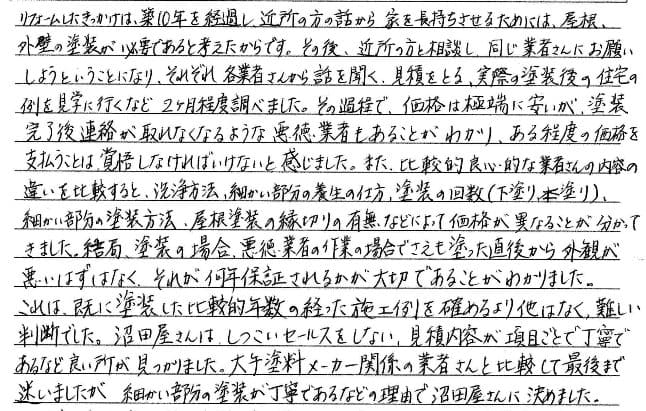 リフォームしたきっかけは、築10年を経過し、近所の方の話から家を長持ちさせるためには、屋根、
外壁の塗装が必要であると考えたからです。その後、近所の方と相談し、同じ業者さんにお願い
しようということになり、それぞれ各業者さんから話を聞く、見積をとる、実際の塗装後の住宅の
例を見学に行くなど2ヶ月程度調べました。その過程で、価格は極端に安いが、塗装
完了後連絡が取れなくなるような悪徳業者もあることがわかり、ある程度の価格を
支払うことは覚悟しなければいけないと感じました。また、比較的良心的な業者さんの内容の
違いを比較すると、洗浄方法、細かい部分の養生の仕方、塗装の回数(下塗り、本塗り)、
細かい部分の塗装方法、屋根塗装の縁切りの有無などによって価格が異なることが分かって
きました。結局、塗装の場合、悪徳業者の作業の場合でさえも塗った直後から外観が
悪いはずはなく、それが何年保証されるかが大切であることがわかりました。
これは、既に塗装した比較的年数の経った施工例を確めるより他はなく、難しい
判断でした。沼田屋さんは、しつこいセールスをしない、見積内容が項目ごとで丁寧で
あるなど良い所が見つかりました。大手塗料メーカー関係の業者さんと比較して最後まで
迷いましたが 細かい部分の塗装が丁寧であるなどの理由で沼田屋さんに決めました。